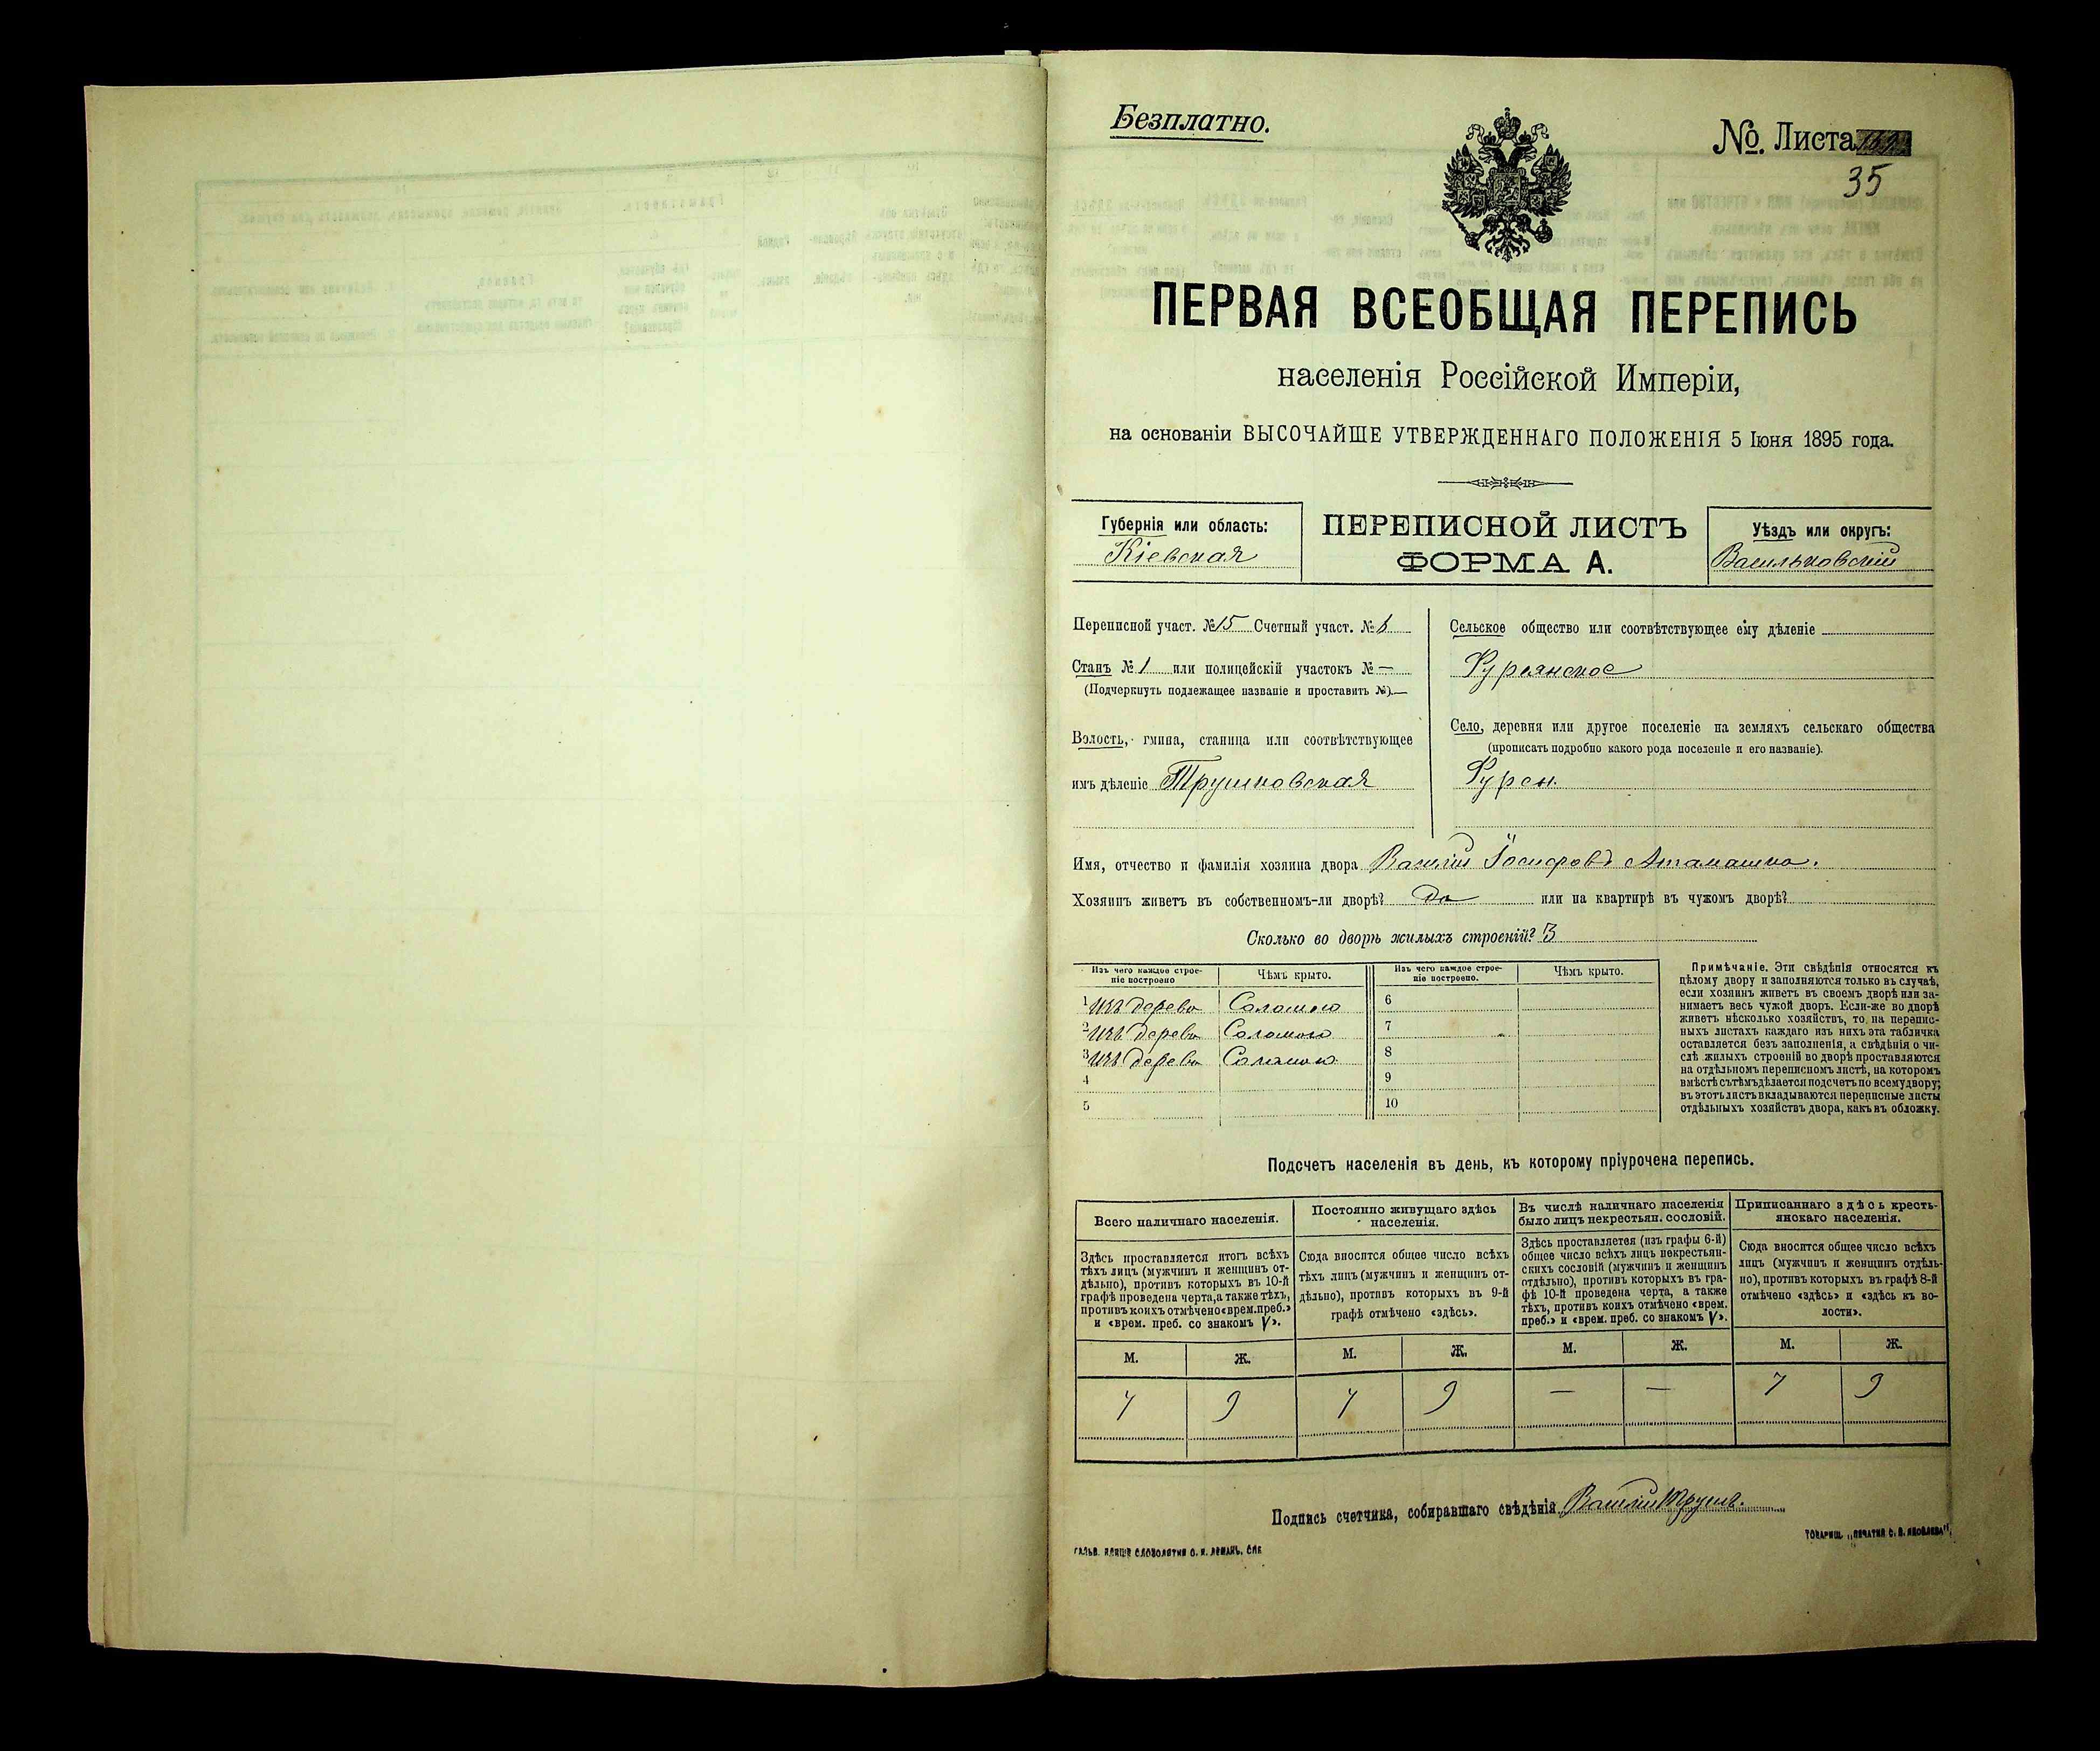 Безплатно.
№. Листа
35
ПЕРВАЯ ВСЕОБЩАЯ ПЕРЕПИСЬ
населенія Россійской Имперіи,
на основаніи ВЫСОЧАЙШЕ УТВЕРЖДЕННАГО ПОЛОЖЕНІЯ 5 Іюня 1895 года.
Губернія или область:
Кіевская
ПЕРЕПИСНОЙ ЛИСТЪ
ФОРМА А.
Уѣздъ или округъ:
Васильковскій
Переписной участ. № 15 Счетный участ. №
Станъ № 1 или полицейскій участокъ № —
(Подчеркнуть подлежащее названіе и проставить №). —
Волость, гмина, станица или соотвѣтствующее
имъ дѣленіе Трушковская
Сельское общество или соотвѣтствующее ему дѣленіе
Село, деревня или другое поселеніе на земляхъ сельскаго общества
(прописать подробно какого рода поселеніе и его названіе).
Имя, отчество и фамилія хозяина двора Василій Іосифовъ Атамашко.
Хозяинъ живетъ въ собственномъ-ли дворѣ? да или на квартирѣ въ чужомъ дворѣ?
Сколько во дворѣ жилыхъ строеній? 3
Изъ чего каждое строе-
ніе построено
Чѣмъ крыто.
Изъ чего каждое строе-
ніе построено.
Чѣмъ крыто.
1 Изъ дерева Соломою 6
2 Изъ дерева Соломою 7
3 Изъ дерева Соломою 8
4 9
5 10
Примѣчаніе. Эти свѣдѣнія относятся къ
цѣлому двору и заполняются только въ случаѣ,
если хозяинъ живетъ въ своемъ дворѣ или за-
нимаетъ весь чужой дворъ. Если-же во дворѣ
живетъ нѣсколько хозяйствъ, то на перепис-
ныхъ листахъ каждаго изъ нихъ эта табличка
оставляется безъ заполненія, а свѣдѣнія о чи-
слѣ жилыхъ строеній во дворѣ проставляются
на отдѣльномъ переписномъ листѣ, на которомъ
вмѣстѣ съ тѣмъ дѣлается подсчетъ по всему двору;
въ этотъ листъ вкладываются переписные листы
отдѣльныхъ хозяйствъ двора, какъ въ обложку.
Подсчетъ населенія въ день, къ которому пріурочена перепись.
Всего наличнаго населенія.
Здѣсь проставляется итогъ всѣхъ
тѣхъ лицъ (мужчинъ и женщинъ от-
дѣльно), противъ которыхъ въ 10-й
графѣ проведена черта, а также тѣхъ,
противъ коихъ отмѣчено «врем. преб.»
и «врем. преб. со знакомъ V».
Постоянно живущаго здѣсь
населенія.
Сюда вносится общее число всѣхъ
тѣхъ лицъ (мужчинъ и женщинъ от-
дѣльно), противъ которыхъ въ 9-й
графѣ отмѣчено «здѣсь».
Въ числѣ наличнаго населенія
было лицъ некрестьян. сословій.
Здѣсь проставляется (изъ графы 6-й)
общее число всѣхъ лицъ некрестьян-
скихъ сословій (мужчинъ и женщинъ
отдѣльно), противъ которыхъ въ гра-
фѣ 10-й проведена черта, а также
тѣхъ, противъ коихъ отмѣчено «врем.
преб.» и «врем. преб. со знакомъ V».
Приписаннаго здѣсь кресть-
янскаго населенія.
Сюда вносится общее число всѣхъ
лицъ (мужчинъ и женщинъ отдѣль-
но), противъ которыхъ въ графѣ 8-й
отмѣчено «здѣсь» и «здѣсь къ во-
лости».
М. Ж. М. Ж. М. Ж. М. Ж.
7 9 7 9 — — 7 9
Подпись счетчика, собиравшаго свѣдѣнія Василій
ТОВАРИЩ. „ПЕЧАТНЯ С. П. ЯКОВЛЕВА".